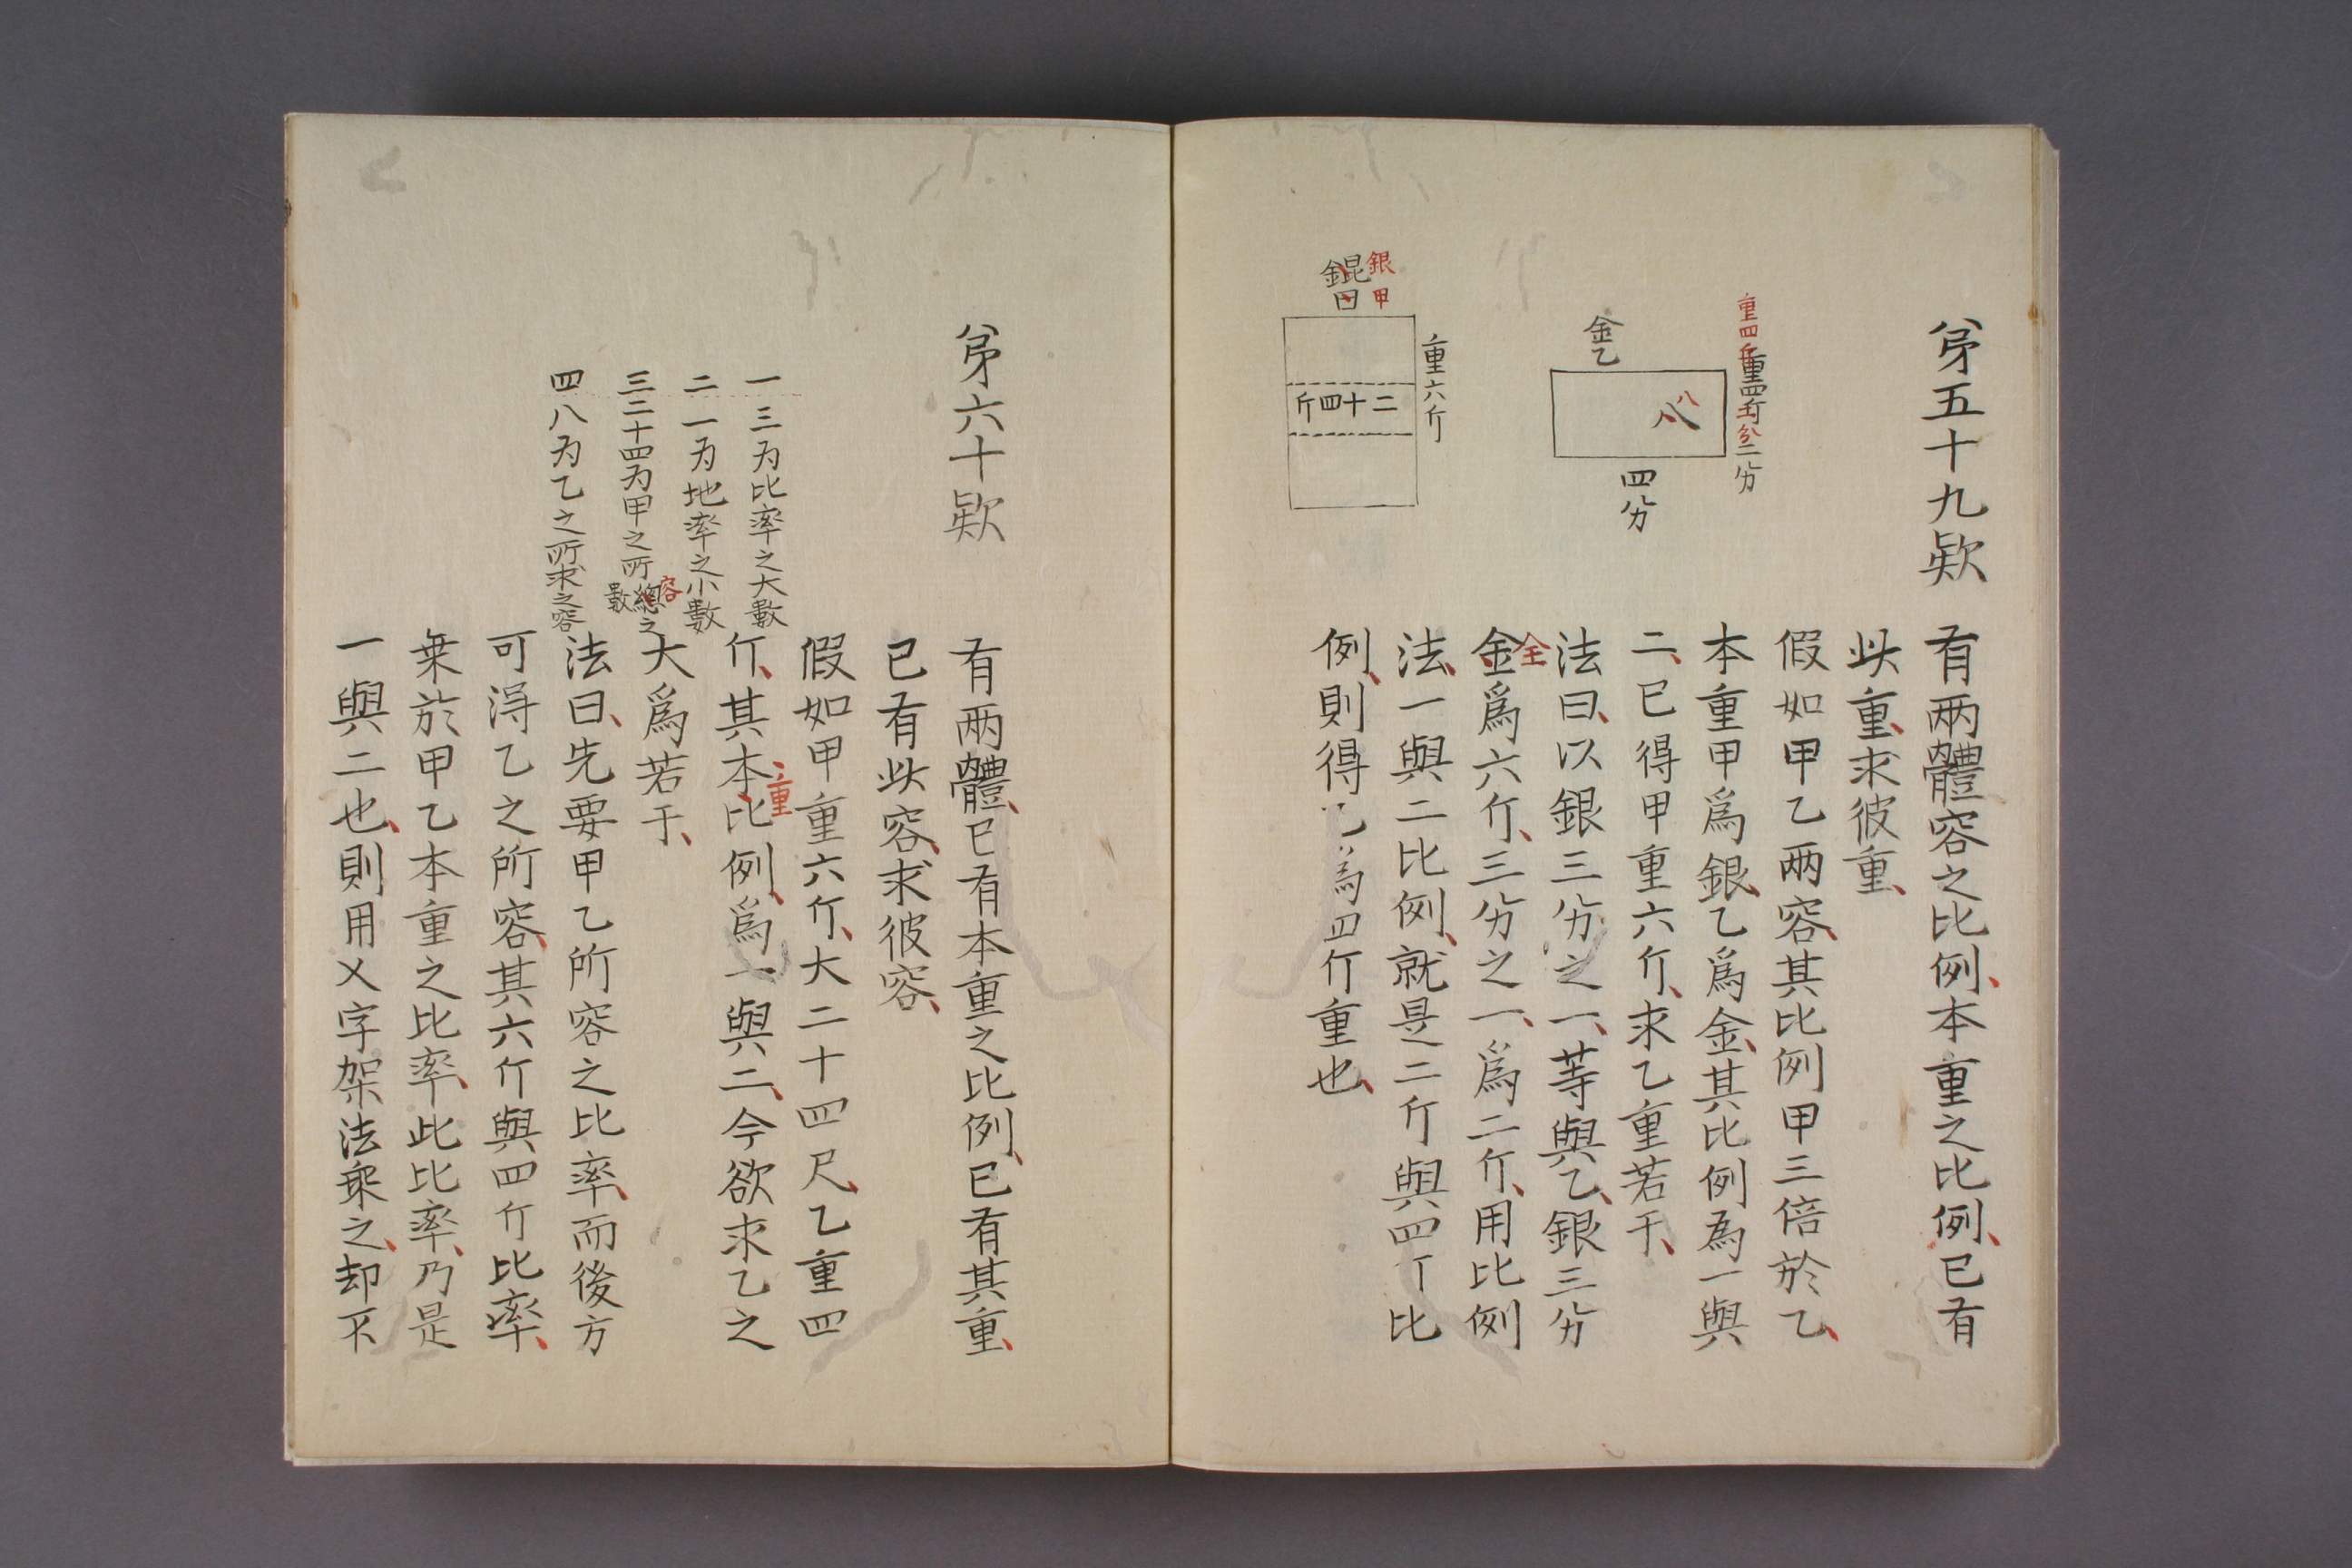 第五十九欵
重四斤
重四斤二分
金乙
八
四分
銀甲
錕甲
重六斤
二十四斤
有两體容之比例本重之比例已有
此重求彼重
假如甲乙两容其比例甲三倍於乙
本重甲爲銀乙爲金其比例為一與
二已得甲重六斤求乙重若干
法曰以銀三分之一等與乙銀三分
全
金爲六斤三分之一爲二斤用比例
法一與二比例就是二斤與四斤比
例則得乙爲四斤重也
第六十欵
有两體已有本重之比例已有其重
已有此容求彼容
假如甲重六斤大二十四尺乙重四
斤其本比例爲一與二今欲求乙之
重
大爲若干
法曰先要甲乙所容之比率而後方
可淂乙之所容其六斤與四斤比率
乗於甲乙本重之比率此比率乃是
一與二也則用乂字架法乗之却不
一 三为比率之大數
二 一为地率之小數
三 二十四为甲之所總之數
容
四 八为乙之所求之容